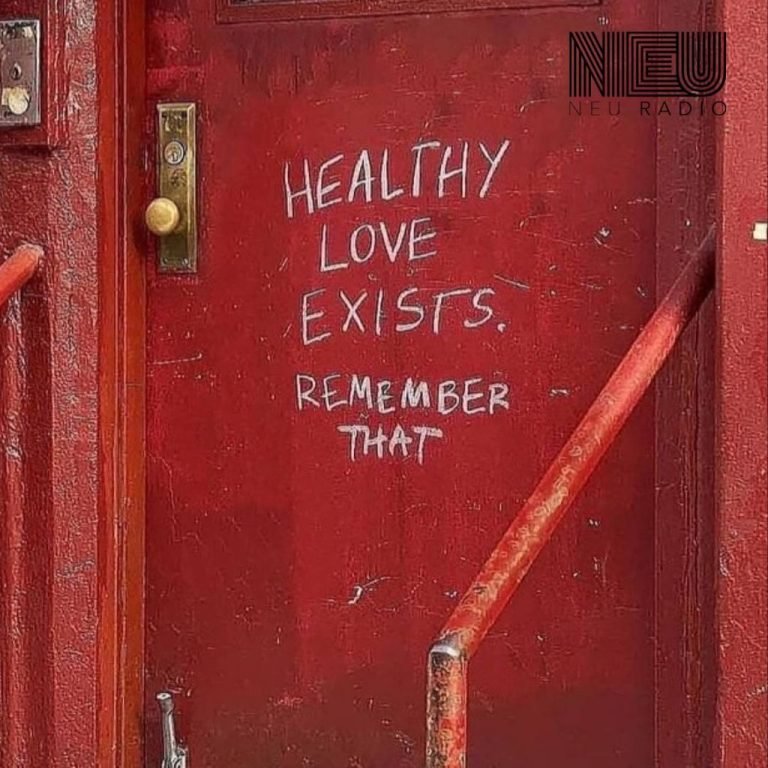 NEU
NEU RADIO
HEALTHY
LOVE
EXISTS.
REMEMBER
THAT